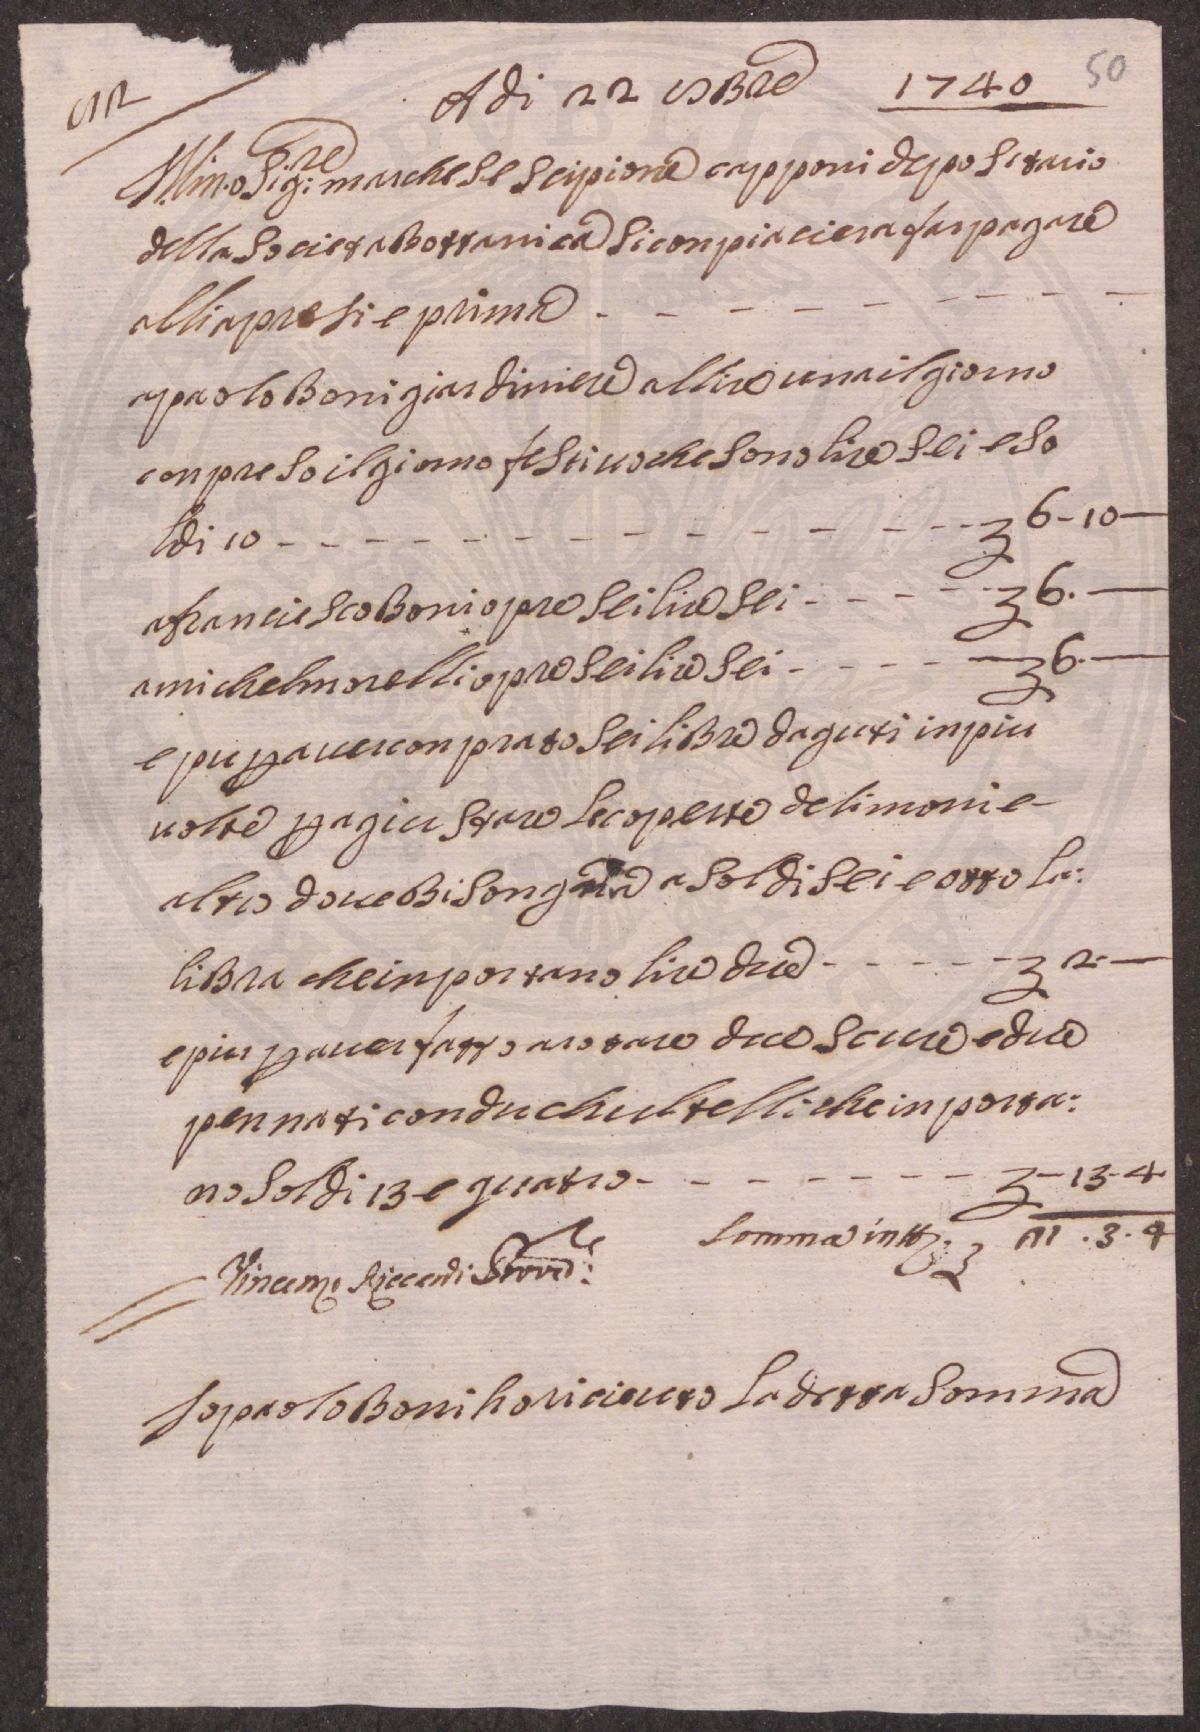 50
A di 22 9Bre 1740
Ill.mo Sig.re marchese Scipione capponi depositario
della Societa Bottanica si conpiaciera far pagare
alli apresi e prima
a paolo Boni giardiniere a llire una il giorno
conpreso il giorno festiuo che sono lire sei e so
ldi 10 6-10
a franciesco Boni opre sei lire sei 6.
a michel morelli opre sei lire sei 6.
e piu p auer conprato sei libre daguti in piu
uolte p agiustare le coperte de limoni e
altro doue Bisongnia a soldi sei e otto la:
libra che inportano lire due 2.
e piu p auer fatto arotare due scure e due
pennati con du chultelli che inporta:
no soldi 13 e quatro - 13 - 4
Somma in tt.o 21 . 3 . 4
Vincenzo Riccardi Proved:
Io paolo Boni ho riceuuto La detta Somma